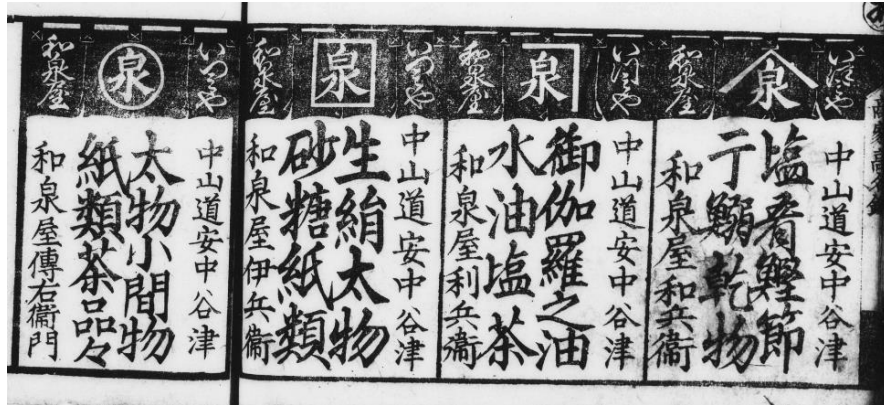 いつミや
泉
和泉屋
中山道安中谷津
塩肴鰹節
干鰯乾物
和泉屋和兵衞
いつミや
泉
和泉屋
中山道安中谷津
御伽羅之油
水油塩茶
和泉屋利兵衞
いつミや
泉
和泉屋
中山道安中谷津
生絹太物
砂糖紙類
和泉屋伊兵衞
いつミや
泉
和泉屋
中山道安中谷津
太物小間物
紙類茶品々
和泉屋傳右衞門